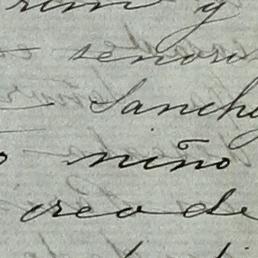 y
señor
Sanche
niño
creo de